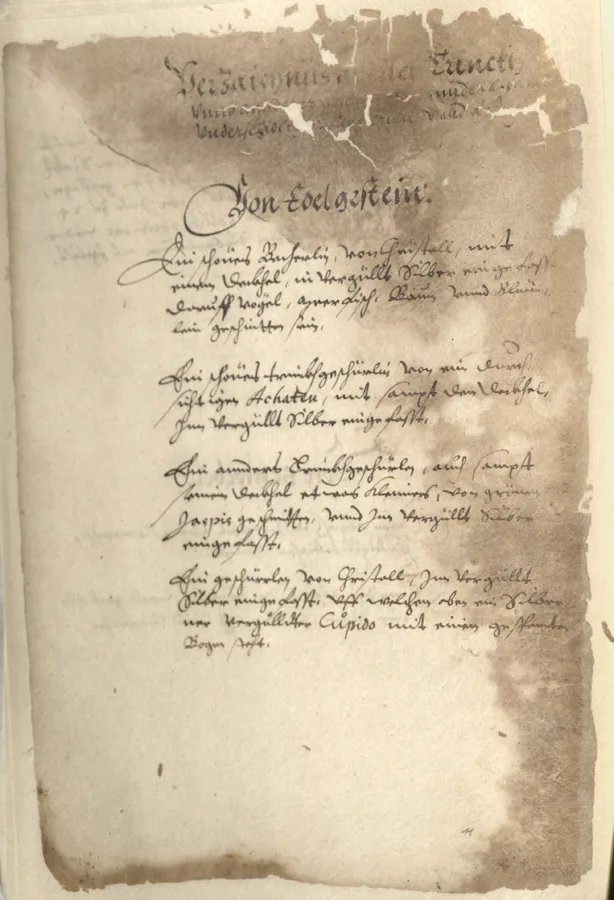 Verzaichnus
Vnd
Vnderschidt
Von Edelgestein.
Ein schönes Becherlin, von Christall, mit
einem Deckhel, in Vergüllt Silber eingefasst
darauff Vögel, Baum vnnd
lein geschnitten sein.
Ein schönes trinckhgeschürlin von ein durch
sichtigen Achaten, mit sampt dem Deckhel,
Inn Vergüllt Silber eingefasst.
Ein annders Trinckhgeschürlen, auch sampt
seinem Deckhel etwas kleiners, Von grünen
Jaspis geschnitten, vnnd Inn Vergüllt Silber
eingefasst.
Ein geschürrlen von Christall, Inn Vergüllt
Silber eingefasst, vff welchem oben ein Silber
ner Vergüllter Cupido mit einem gespanten
Bogen steht.